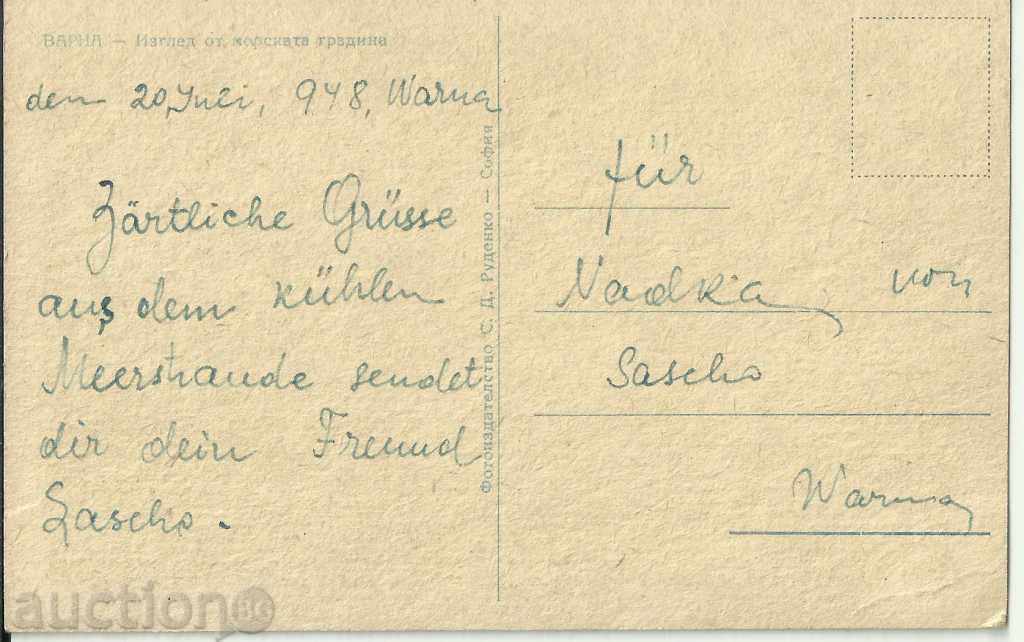 ВАРНА — Изглед от морската градина
den 20 Juli, 948, Warna
Zärtliche Grüsse
aus dem kühlen
Meerstrande sendet
dir dein Freund
Sascho.
Фотоиздателство С. Д. Руденко — София
für
Nadka von
Sascho
Warna
auction BG